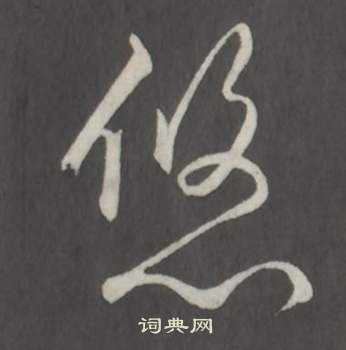 悠
词典网